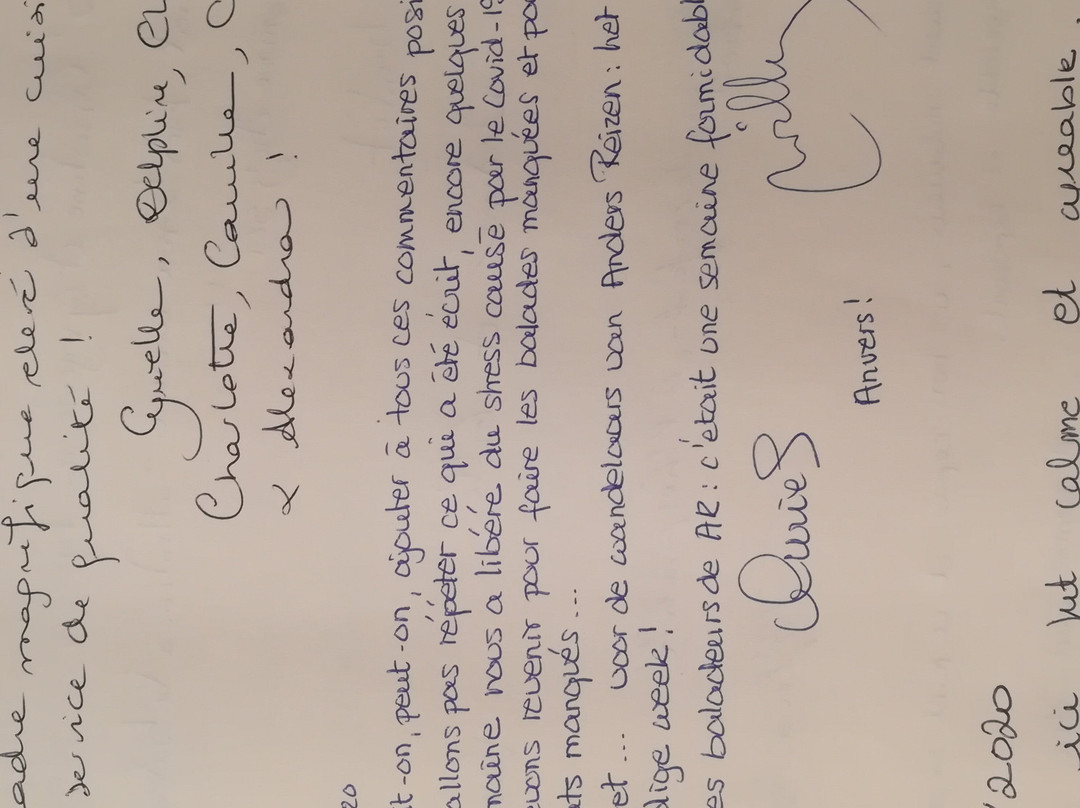 adre magnifique élevé d'une cuisi
service de qualité !
Delphine,
Charlotte, Camille,
& Alexandra !
20
t-on, peut-on, ajouter à tous ces commentaires posi
allons pas répéter ce qui a été écrit, encore quelques
maine nous a libéré du stress causé par le Covid-19
evons revenir pour faire les balades manquées et pou
ats manqués...
et... voor de wandelaars van Anders Reizen : het
dige week !
es baladeurs de AR : c'était une semaine formidabl
Anvers!
2020
ici fut calme et agréable.